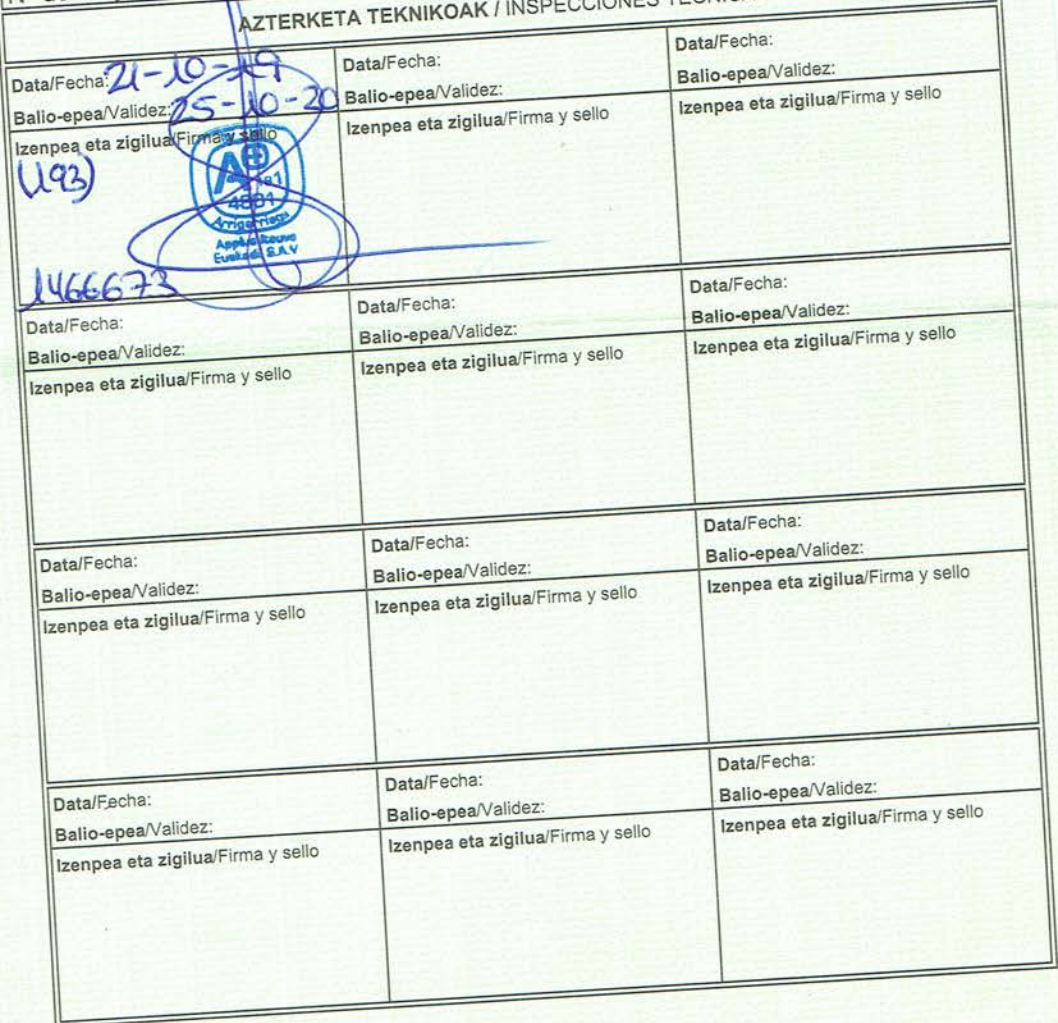 AZTERKETA TEKNIKOAK / INSPECCIONES
Data/Fecha: 21-10-19
Balio-epea/Validez: 25-10-20
Izenpea eta zigilua/Firma y sello
(193)
4881
Arrigorriaga
Applus Iteuve
Euskadi S.A.V
1466673
Data/Fecha:
Balio-epea/Validez:
Izenpea eta zigilua/Firma y sello
Data/Fecha:
Balio-epea/Validez:
Izenpea eta zigilua/Firma y sello
Data/Fecha:
Balio-epea/Validez:
Izenpea eta zigilua/Firma y sello
Data/Fecha:
Balio-epea/Validez:
Izenpea eta zigilua/Firma y sello
Data/Fecha:
Balio-epea/Validez:
Izenpea eta zigilua/Firma y sello
Data/Fecha:
Balio-epea/Validez:
Izenpea eta zigilua/Firma y sello
Data/Fecha:
Balio-epea/Validez:
Izenpea eta zigilua/Firma y sello
Data/Fecha:
Balio-epea/Validez:
Izenpea eta zigilua/Firma y sello
Data/Fecha:
Balio-epea/Validez:
Izenpea eta zigilua/Firma y sello
Data/Fecha:
Balio-epea/Validez:
Izenpea eta zigilua/Firma y sello
Data/Fecha:
Balio-epea/Validez:
Izenpea eta zigilua/Firma y sello